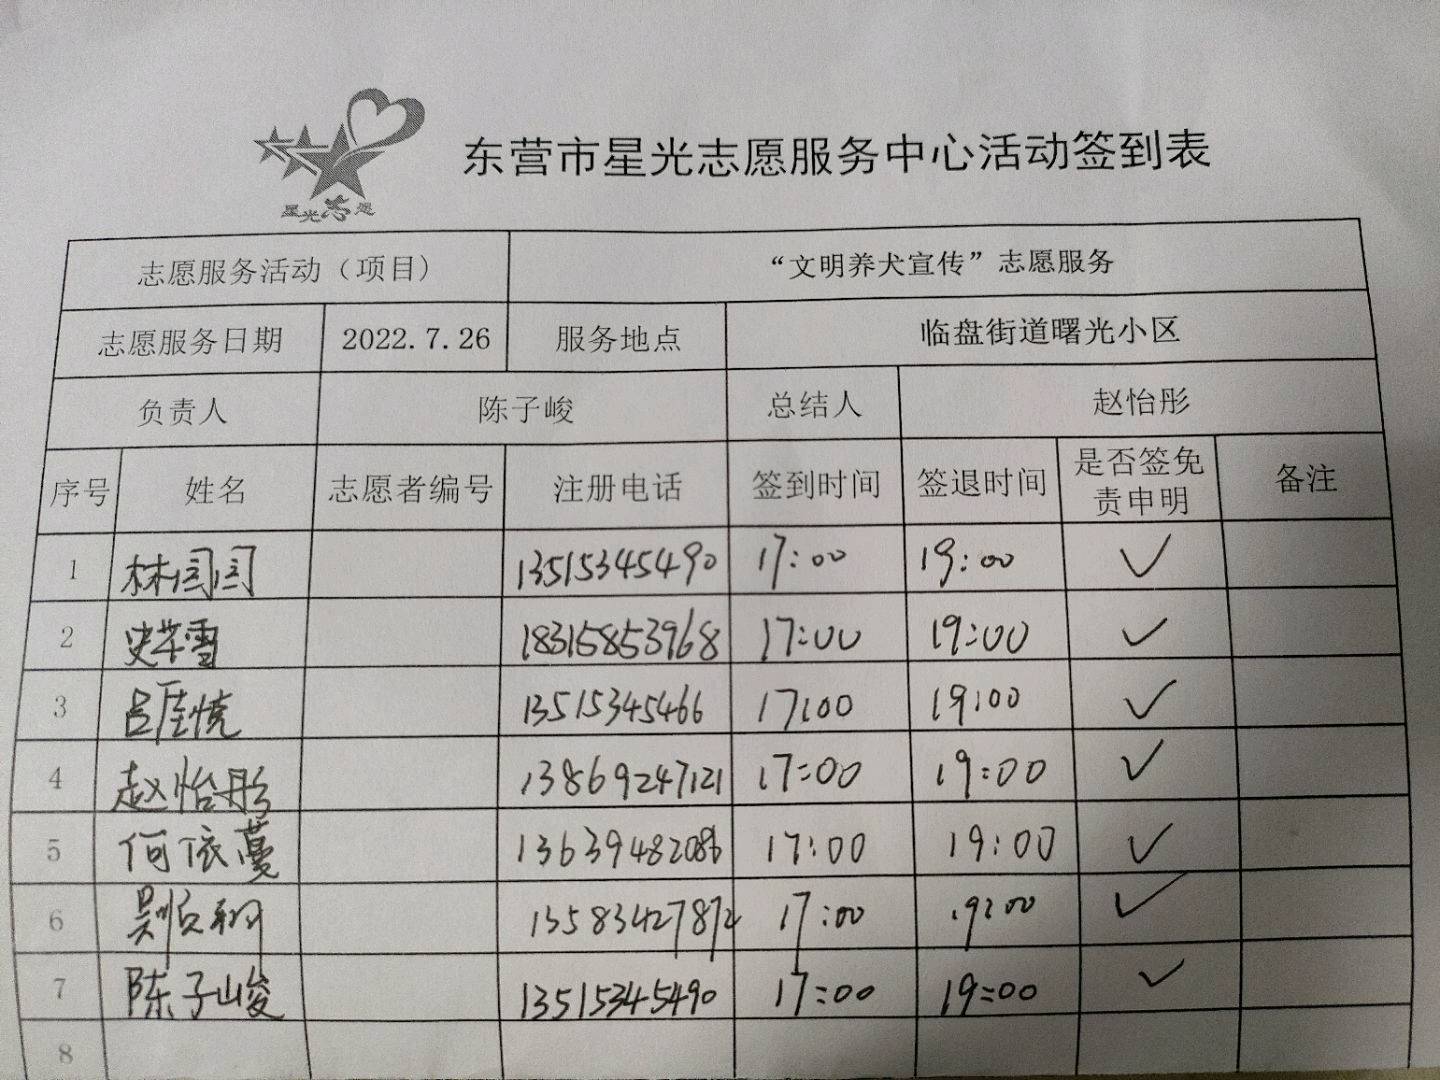 星光志愿
东营市星光志愿服务中心活动签到表
志愿服务活动（项目） “文明养犬宣传”志愿服务
志愿服务日期 2022.7.26 服务地点 临盘街道曙光小区
负责人 陈子峻 总结人 赵怡彤
序号 姓名 志愿者编号 注册电话 签到时间 签退时间 是否签免责申明 备注
1 林闫闫 13515345490 17:00 19:00 ✓
2 史苯雪 18315853968 17:00 19:00 ✓
3 吕佳悦 13515345466 17:00 19:00 ✓
4 赵怡彤 13869247121 17:00 19:00 ✓
5 何依蔓 13639482086 17:00 19:00 ✓
6 13583427872 17:00 19:00 ✓
7 陈子峻 13515345490 17:00 19:00 ✓
8